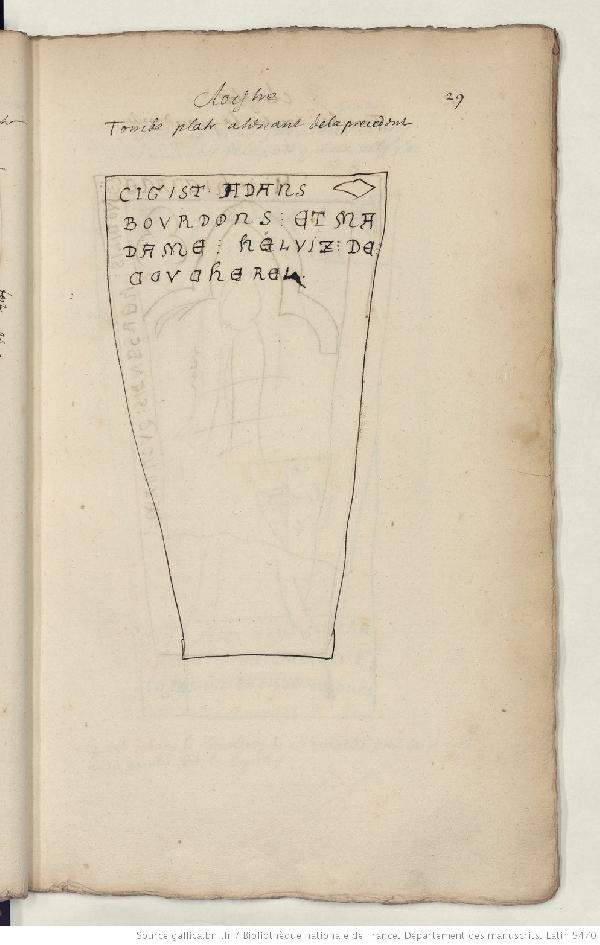 Cloistre
29
Tombe plate attenant de la precedente
CIGIST ADANS
BOVRDONS : ET MA
DAME : HELVIZ : DE
COVCHEREL
Source gallica.bnf.fr / Bibliothèque nationale de France. Département des manuscrits. Latin 5470